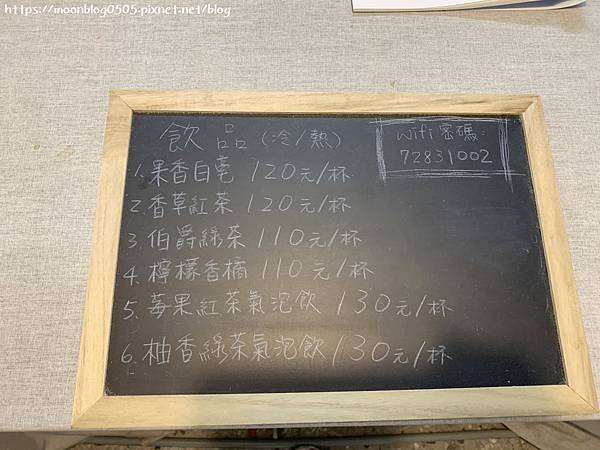 https://moonblog0505.pixnet.net/blog
飲品(冷/熱)
Wifi 密碼:
72831002
1.果香白毫 120元/杯
2.香草紅茶 120元/杯
3.伯爵綠茶 110元/杯
4.檸檬香橘 110元/杯
5.莓果紅茶氣泡飲 130元/杯
6.柚香綠茶氣泡飲 130元/杯